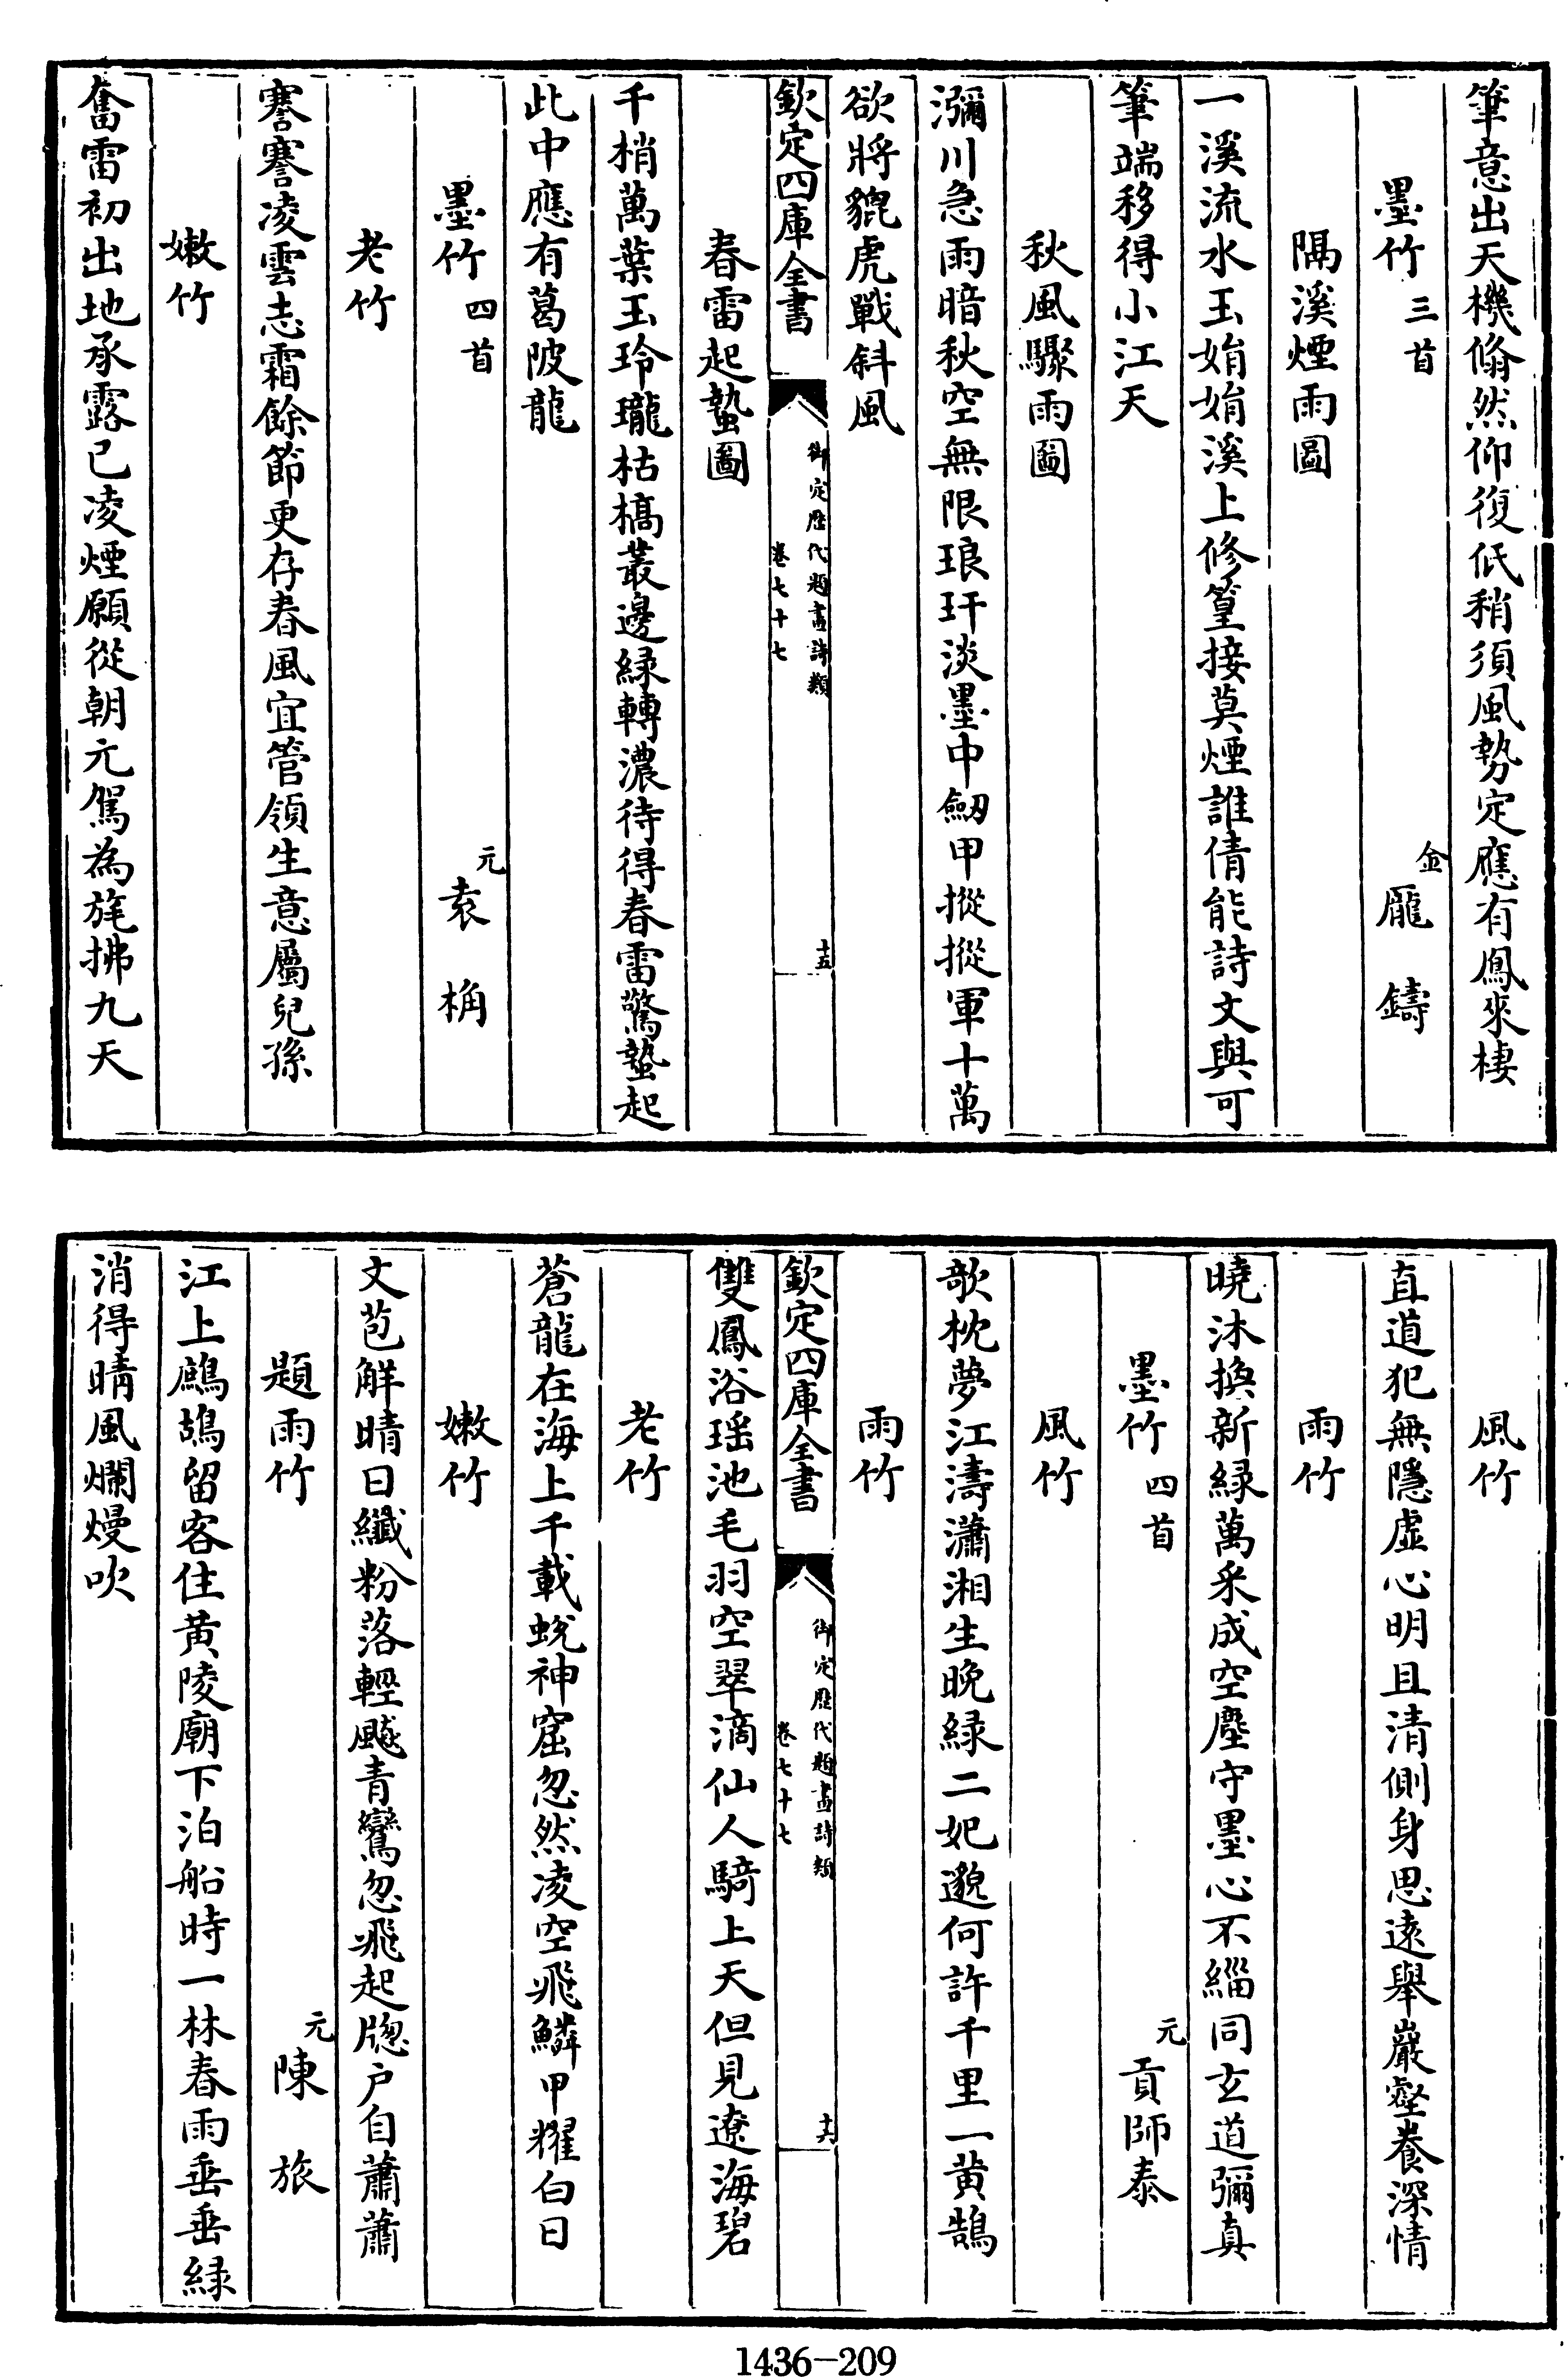 筆意出天機翛然仰復低稍須風勢定應有鳳來棲
墨竹三首 金 龎鑄
隔溪煙雨圖
一溪流水玉娟娟溪上修篁接莫煙誰倩能詩文與可
筆端移得小江天
秋風驟雨圖
瀰川急雨暗秋空無限琅玕淡墨中劔甲摐摐軍十萬
欲將貔虎戰斜風
欽定四庫全書 御定歷代題畫詩類 卷七十七 十五
春雷起蟄圖
千梢萬葉玉玲瓏枯槁叢邊緑轉濃待得春雷驚蟄起
此中應有葛陂龍
墨竹四首 元 袁桷
老竹
謇謇凌雲志霜餘節更存春風宜管領生意屬兒孫
嫩竹
奮雷初出地承露已凌煙願從朝元駕為旄拂九天
風竹
直道犯無隱虛心明且清側身思遠舉巖壑養深情
雨竹
曉沐換新緑萬采成空塵守墨心不緇同玄道彌真
墨竹四首 元 貢師泰
風竹
欹枕夢江濤瀟湘生晚緑二妃邈何許千里一黄鵠
雨竹
欽定四庫全書 御定歷代題畫詩類 卷七十七 十六
雙鳳浴瑶池毛羽空翠滴仙人騎上天但見遼海碧
老竹
蒼龍在海上千載蛻神窟忽然凌空飛鱗甲耀白日
嫩竹
文苞解晴日纖粉落輕飈青鸞忽飛起牕户自蕭蕭
題雨竹 元 陳旅
江上鷓鴣留客住黄陵廟下泊船時一林春雨垂垂緑
消得晴風爛熳吹
1436-209